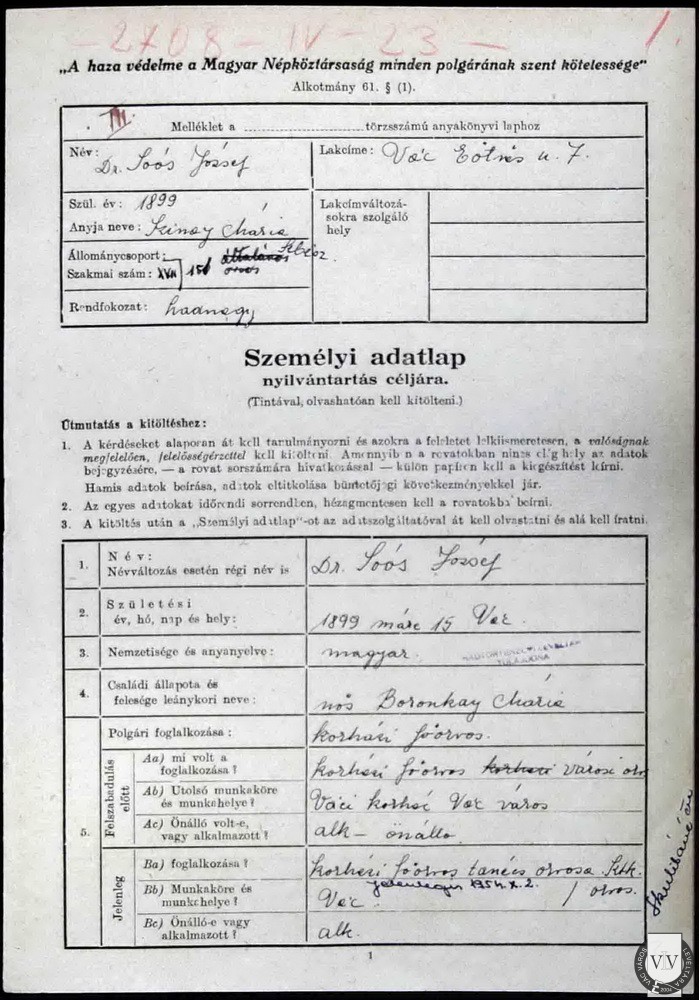 - 2708 - IV - 23 - 1.
„A haza védelme a Magyar Népköztársaság minden polgárának szent kötelessége"
Alkotmány 61. § (1).
III.
Melléklet a ........................ törzsszámú anyakönyvi laphoz
Név: Dr. Soós József
Lakcíme: Vác Eötvös u. 7.
Szül. év: 1899
Anyja neve: Mária
Lakcímváltozá-
sokra szolgáló
hely
Állománycsoport:
Szakmai szám: XVII 151 általános orvos
Rendfokozat: hadnagy
Személyi adatlap
nyilvántartás céljára.
(Tintával, olvashatóan kell kitölteni.)
Útmutatás a kitöltéshez:
1. A kérdéseket alaposan át kell tanulmányozni és azokra a feleletet lelkiismeretesen, a valóságnak
megfelelően, felelősségérzettel kell kitölteni. Amennyiben a rovatokban nincs elég hely az adatok
bejegyzésére, — a rovat sorszámára hivatkozással — külön papíron kell a kiegészítést leírni.
Hamis adatok beírása, adatok eltitkolása büntetőjogi következményekkel jár.
2. Az egyes adatokat időrendi sorrendben, hézagmentesen kell a rovatokba beírni.
3. A kitöltés után a „Személyi adatlap"-ot az adatszolgáltatóval át kell olvastatni és alá kell íratni.
1. Név:
Névváltozás esetén régi név is
Dr. Soós József
2. Születési
év, hó, nap és hely:
1899 márc 15 Vác
3. Nemzetisége és anyanyelve: magyar
TULAJDONA
4. Családi állapota és
felesége leánykori neve:
nős Boronkay Mária
5. Polgári foglalkozása: korházi főorvos.
Felszabadulás előtt
Aa) mi volt a
foglalkozása?
korházi főorvos korházi városi orv
Ab) Utolsó munkaköre
és munkahelye?
Váci korház Vác város
Ac) Önálló volt-e,
vagy alkalmazott?
alk — önálló
Jelenleg
Ba) foglalkozása? korházi főorvos tanács orvosa
Bb) Munkaköre és
munkahelye?
Vác jelenleges 1954. X. 2. / orvos.
Bc) Önálló-e vagy
alkalmazott?
alk.
1
VÁC VÁROS LEVÉLTÁRA
VVL
2004